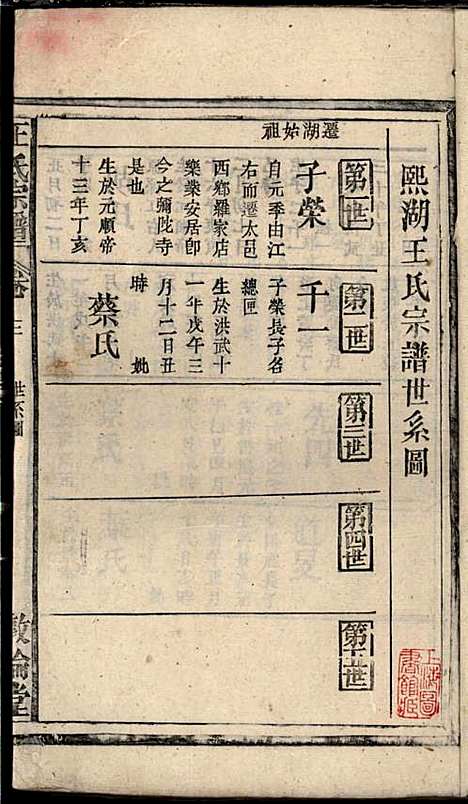 熙湖王氏宗譜世系圖
上海圖
書館藏
第一世
遷湖始祖
子榮
自元季由江
右而遷太邑
西鄉羅家店
樂業安居即
今之彌陁寺
生於元順帝
十三年丁亥
第二世
千一
子榮長子名
總匣
生於洪武十
一年戊午三
月十二日丑
時 妣
蔡氏
第三世
第四世
第五世
王氏宗譜
世系圖
敦倫堂